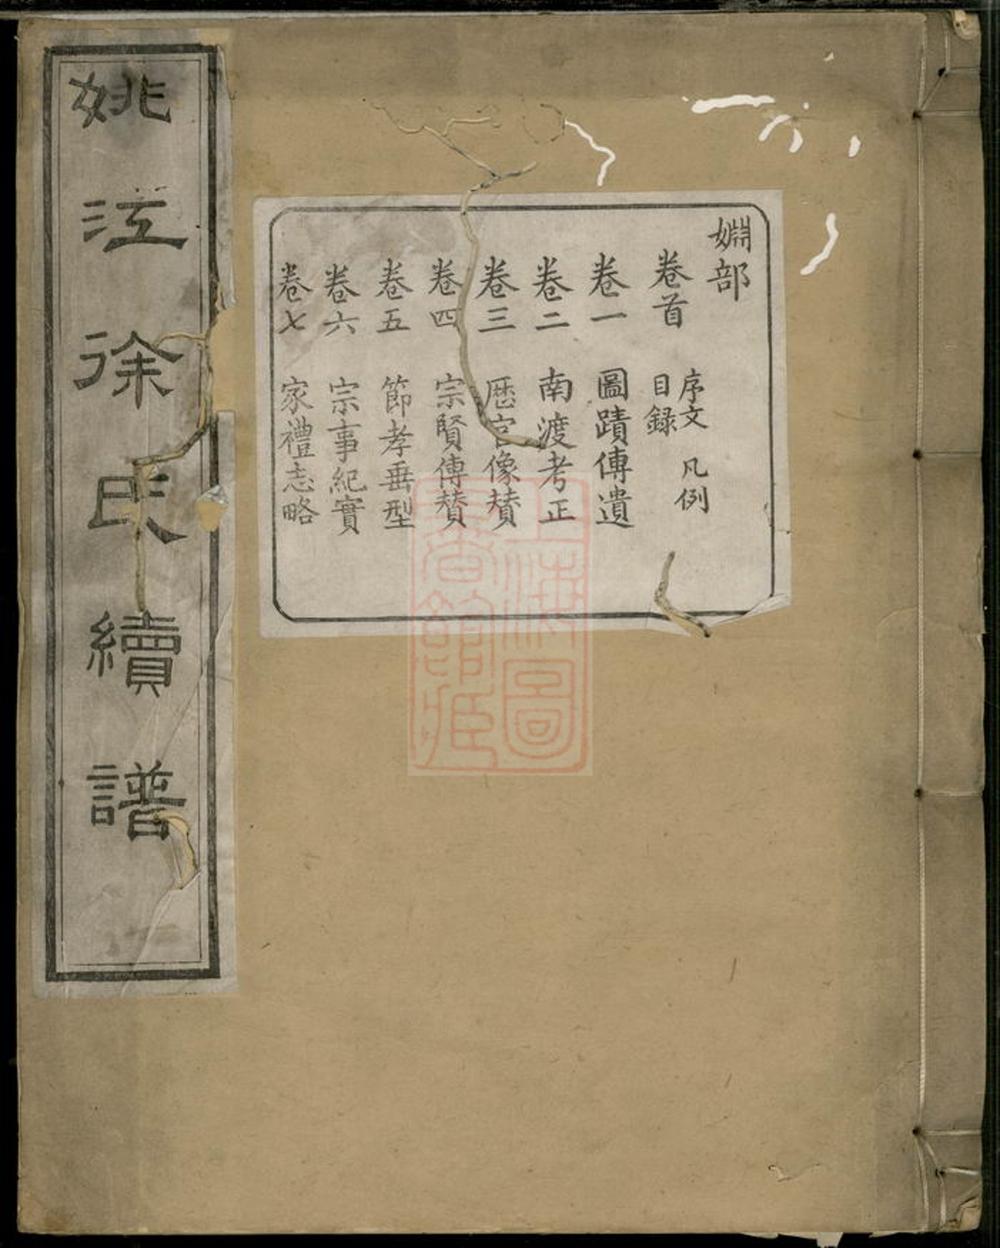 姚江徐氏續譜
婣部
卷首 序文 凡例
目錄
卷一 圖蹟傳遺
卷二 南渡考正
卷三 歷官像賛
卷四 宗賢傳賛
卷五 節孝垂型
卷六 宗事紀實
卷七 家禮志略
上海圖書館藏